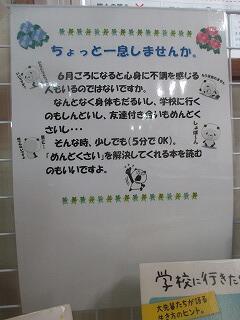 ちょっと一息しませんか。
６月ころになると心身に不調を感じる
人もいるのではないですか。
なんとなく身体もだるいし、学校に行く
のもしんどいし、友達付き合いもめんどく
さいし・・・
そんな時、少しでも(5分でOK)。
「めんどくさい」を解決してくれる本を読む
のもいいですよ。
しょぼーん
学校に行きた
大先輩たちが語る
生き方のヒント。